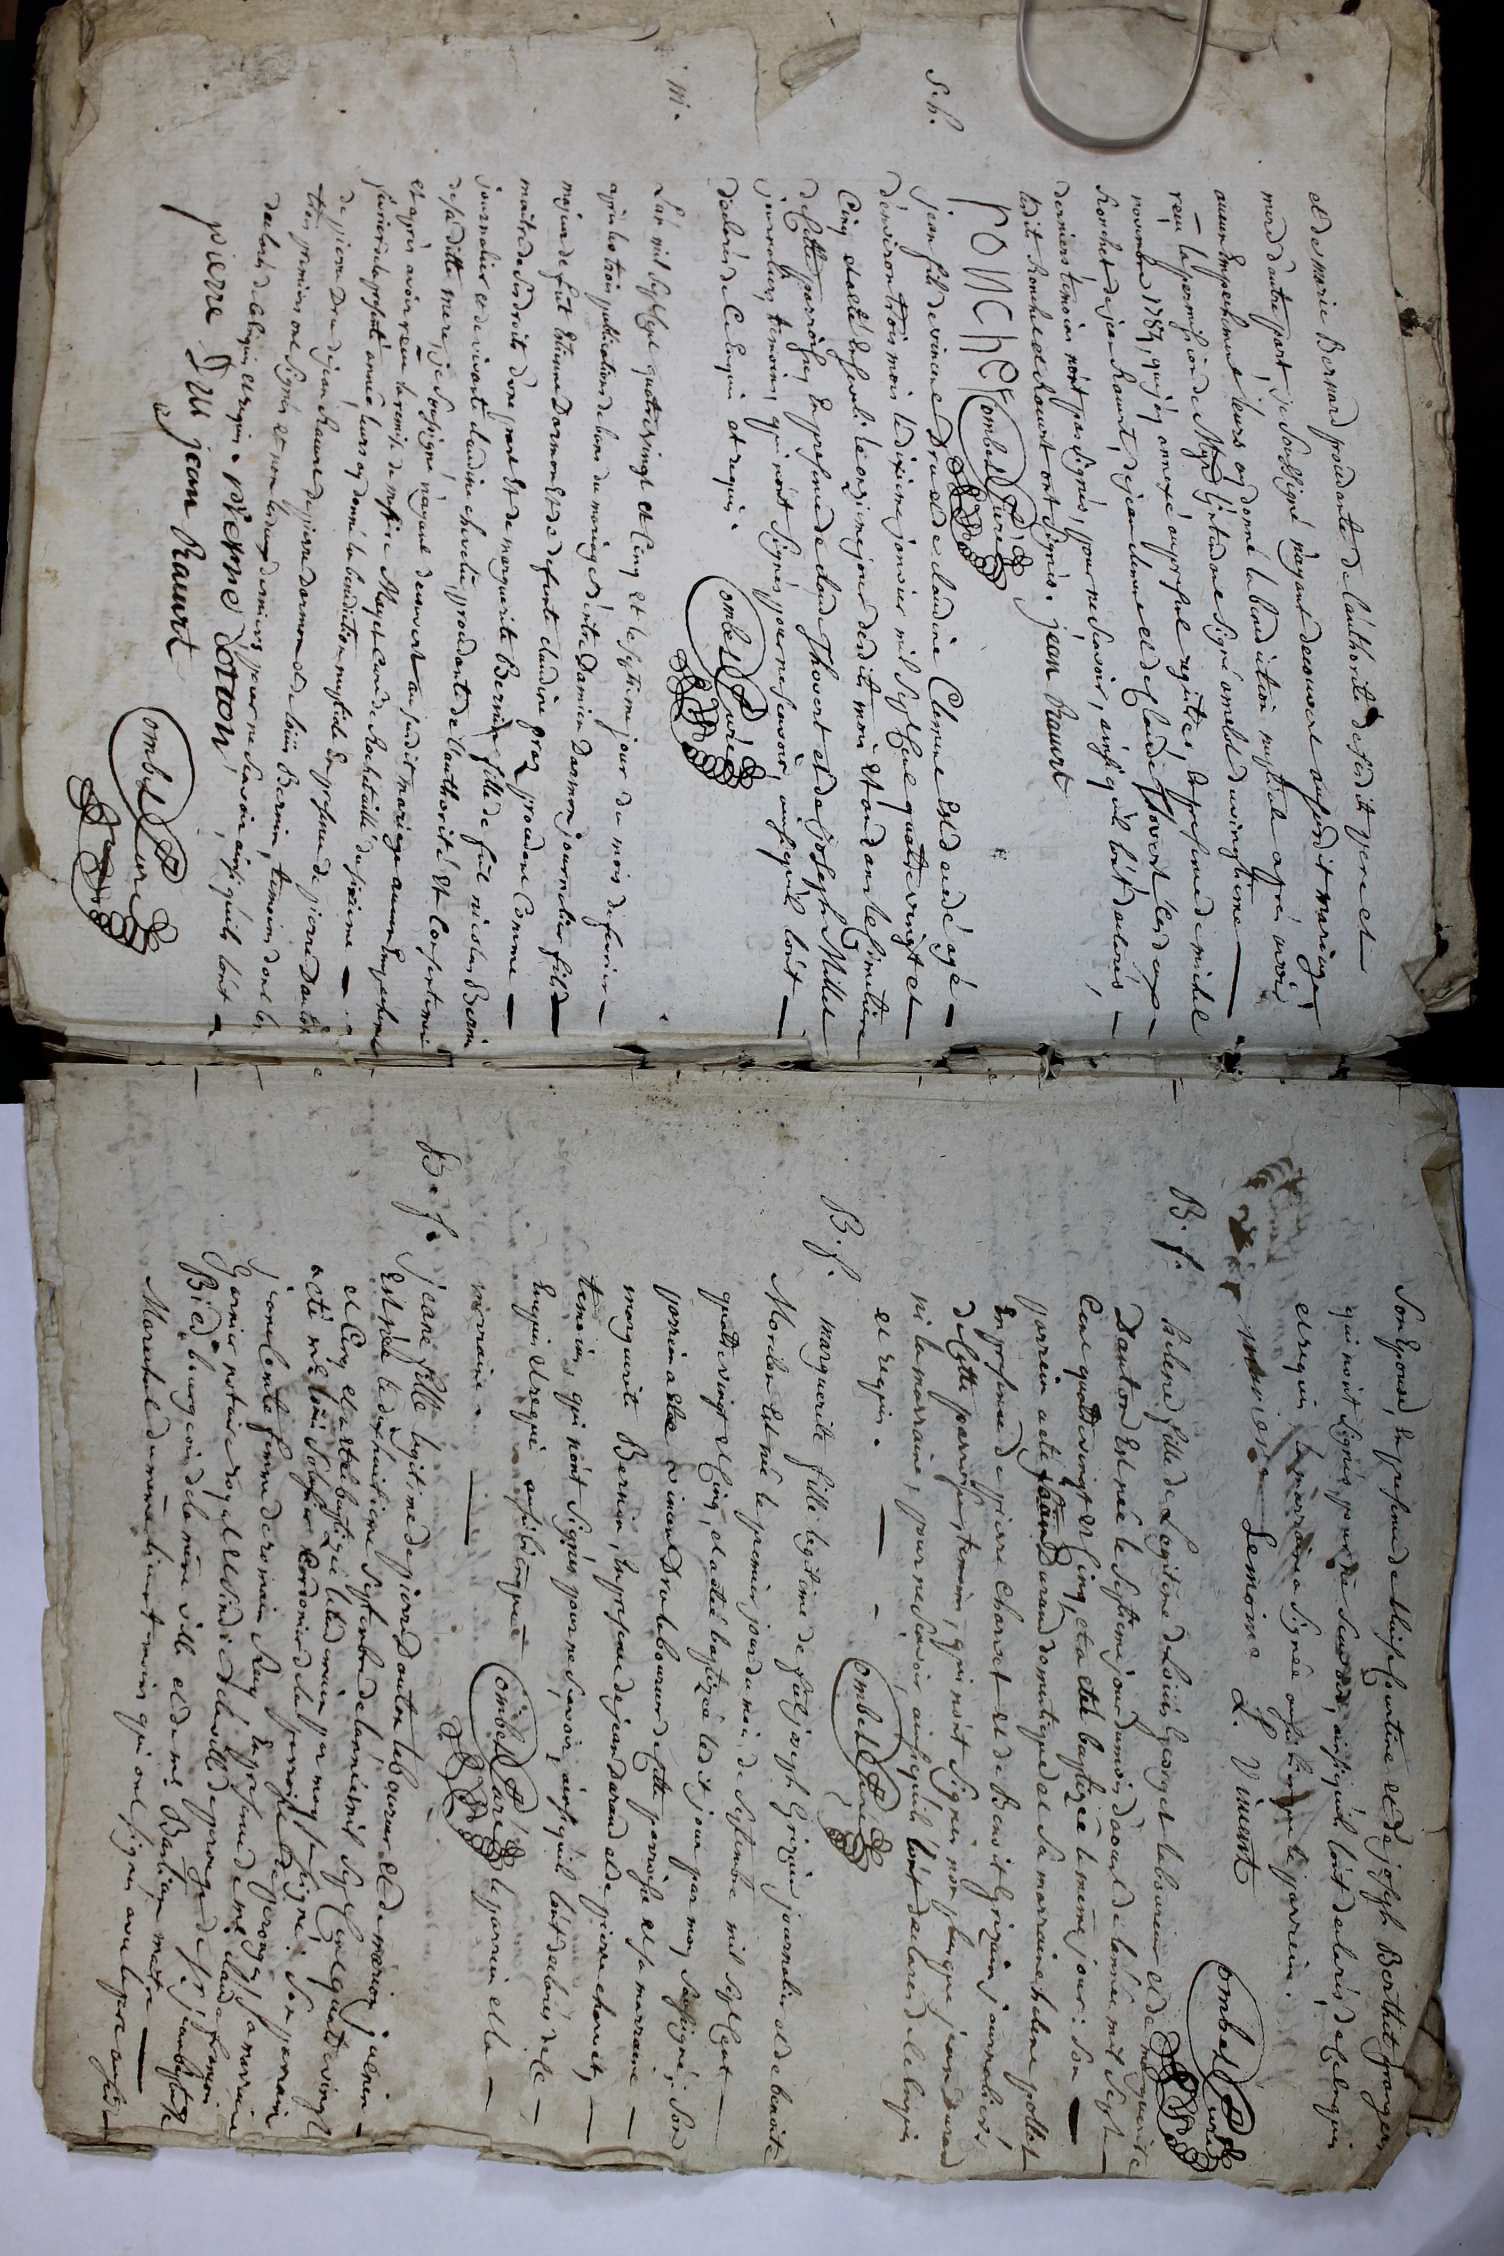 et de marie Bernard procedante de l'authorité desdits pere et
mere d'autre part, je soussigné n'ayant decouvert aususdit mariage
aucun empechement leurs ay donné la benediction nuptiale apres avoir
reçu la permission de Mgr l'intendant signé amelot du vingtieme
novembre 1784, que j'ay annexé au present registre, en presence de michel
Ponchet de jean Raurt, de jean et de Claude Thovert les deux
derniers temoins n'ont pas signés, pour ne sçavoir, ainsi qu'il l'ont declarés,
lesdits Ponchet et Raurt ont signés. jean Raurt
PONCHET Combet Curé
S. h.
jean fils de vincent Dru et de claudine Clement est decedé agé
d'environ trois mois le dixieme janvier mil sept cent quatre vingt et
cinq et a été enseveli le onzieme jour desdit mois et an dans le cimetiere
de cette parroisse, en presence de claude Thovert et de joseph Millet
journaliers temoins, qui n'ont signés pour ne sçavoir, ainsi qu'il l'ont
declarés de ce enquis et requis.
Combet Curé
m.
L'an mil sept cent quatre vingt et cinq et le septieme jour du mois de fevrier
après les trois publications de bans du mariage d'entre Damien Darmon journalier fils
majeur de feut Etienne Dormon et de defunte claudine graz procedant comme
maitre de ses droits d'une part et de marguerite Bernin fille de feut nicolas Bernin
journalier et de vivante claudine chevalier, procedante de l'authorité et consentement
de sa ditte mere, je soussigné n'ayant decouvert au susdit mariage aucun empechement
et après avoir reçu la remise de messire Mayet curé de Rochetaillé du sixieme
fevrier de la presente année, leurs ay donné la benediction nuptiale en presence de pierre Dauton
de pierre Dru, de jean Raurt, de pierre dormon et de loüis Bernin, temoins dont les
trois premiers ont signés et non les deux derniers pour ne sçavoir ainsi qu'ils l'ont
declarés de ce enquis et requis. pierre doton
pierre Dru jean Raurt
Combet Curé
son epouse, en presence de blaise fontline et de joseph Berthet grangers
qui n'ont signés, pour ne sçavoir, ainsi qu'il l'ont declarés de ce enquis
et requis la marraine a signée aussi bien que le parrein.
marion Lemoine L. Vincent
Combet Curé
B. f.
helene fille de Legitime de Loüis Georget laboureur et de marguerite
Dauton est née le septieme jour du mois d'aoust de l'année mil sept
cent quatre vingt et cinq, et a été baptizée le même jour: son
parrein a été Durand domestique et sa marraine helene pollet
en presence de pierre charret et de Benoit Grizain journaliers
de cette parroisse, temoins, qui n'ont signés non plus que jean durand
ni la marraine, pour ne sçavoir ainsi qu'ils l'ont declarés de ce enquis
et requis.
Combet Curé
B. f.
marguerite fille legitime de feüt joseph Grizain journalier et de benoite
Morillon est née le premier jour du mois de Septembre mil sept cent
quatre vingt et cinq, et a été baptizée ledit jour par moy soussigné, son
parrein a été vincent Dru laboureur de cette parroisse et sa marraine
marguerite Bernin, en presence de jean durand et de pierre charret,
temoins qui n'ont signés, pour ne sçavoir, ainsi qu'ils l'ont declarés de ce
enquis et requis aussi bien que le parrein et la
marraine.
Combet Curé
B. f.
jeane fille legitime de pierre Dauton laboureur et de marion julien
est née le dixhuitieme septembre de l'année mil sept cent quatre vingt
et cinq et a été baptizée le lendemain par moy soussigné. son parrain
a été me loüis cordonier de la parroisse de perouge, sa marraine
jeane Comte femme de romain Rey en presence de me claude françois
Garnier notaire royal et sindic de la ville de perouge, de sr jean baptiste
Bied bourgeois de la même ville et de me Bastian maitre
Marechal du même lieu temoins qui ont signés avec le pere aususd.